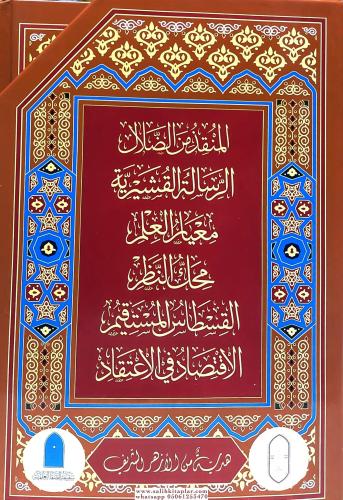 المنقذ من الضلال
الرسالة القشيرية
معيار العلم
محك النظر
القسطاس المستقيم
الاقتصاد في الاعتقاد
هدية من الأزهر الشريف
www.salihkitaplar.com
whatsapp 05061255476